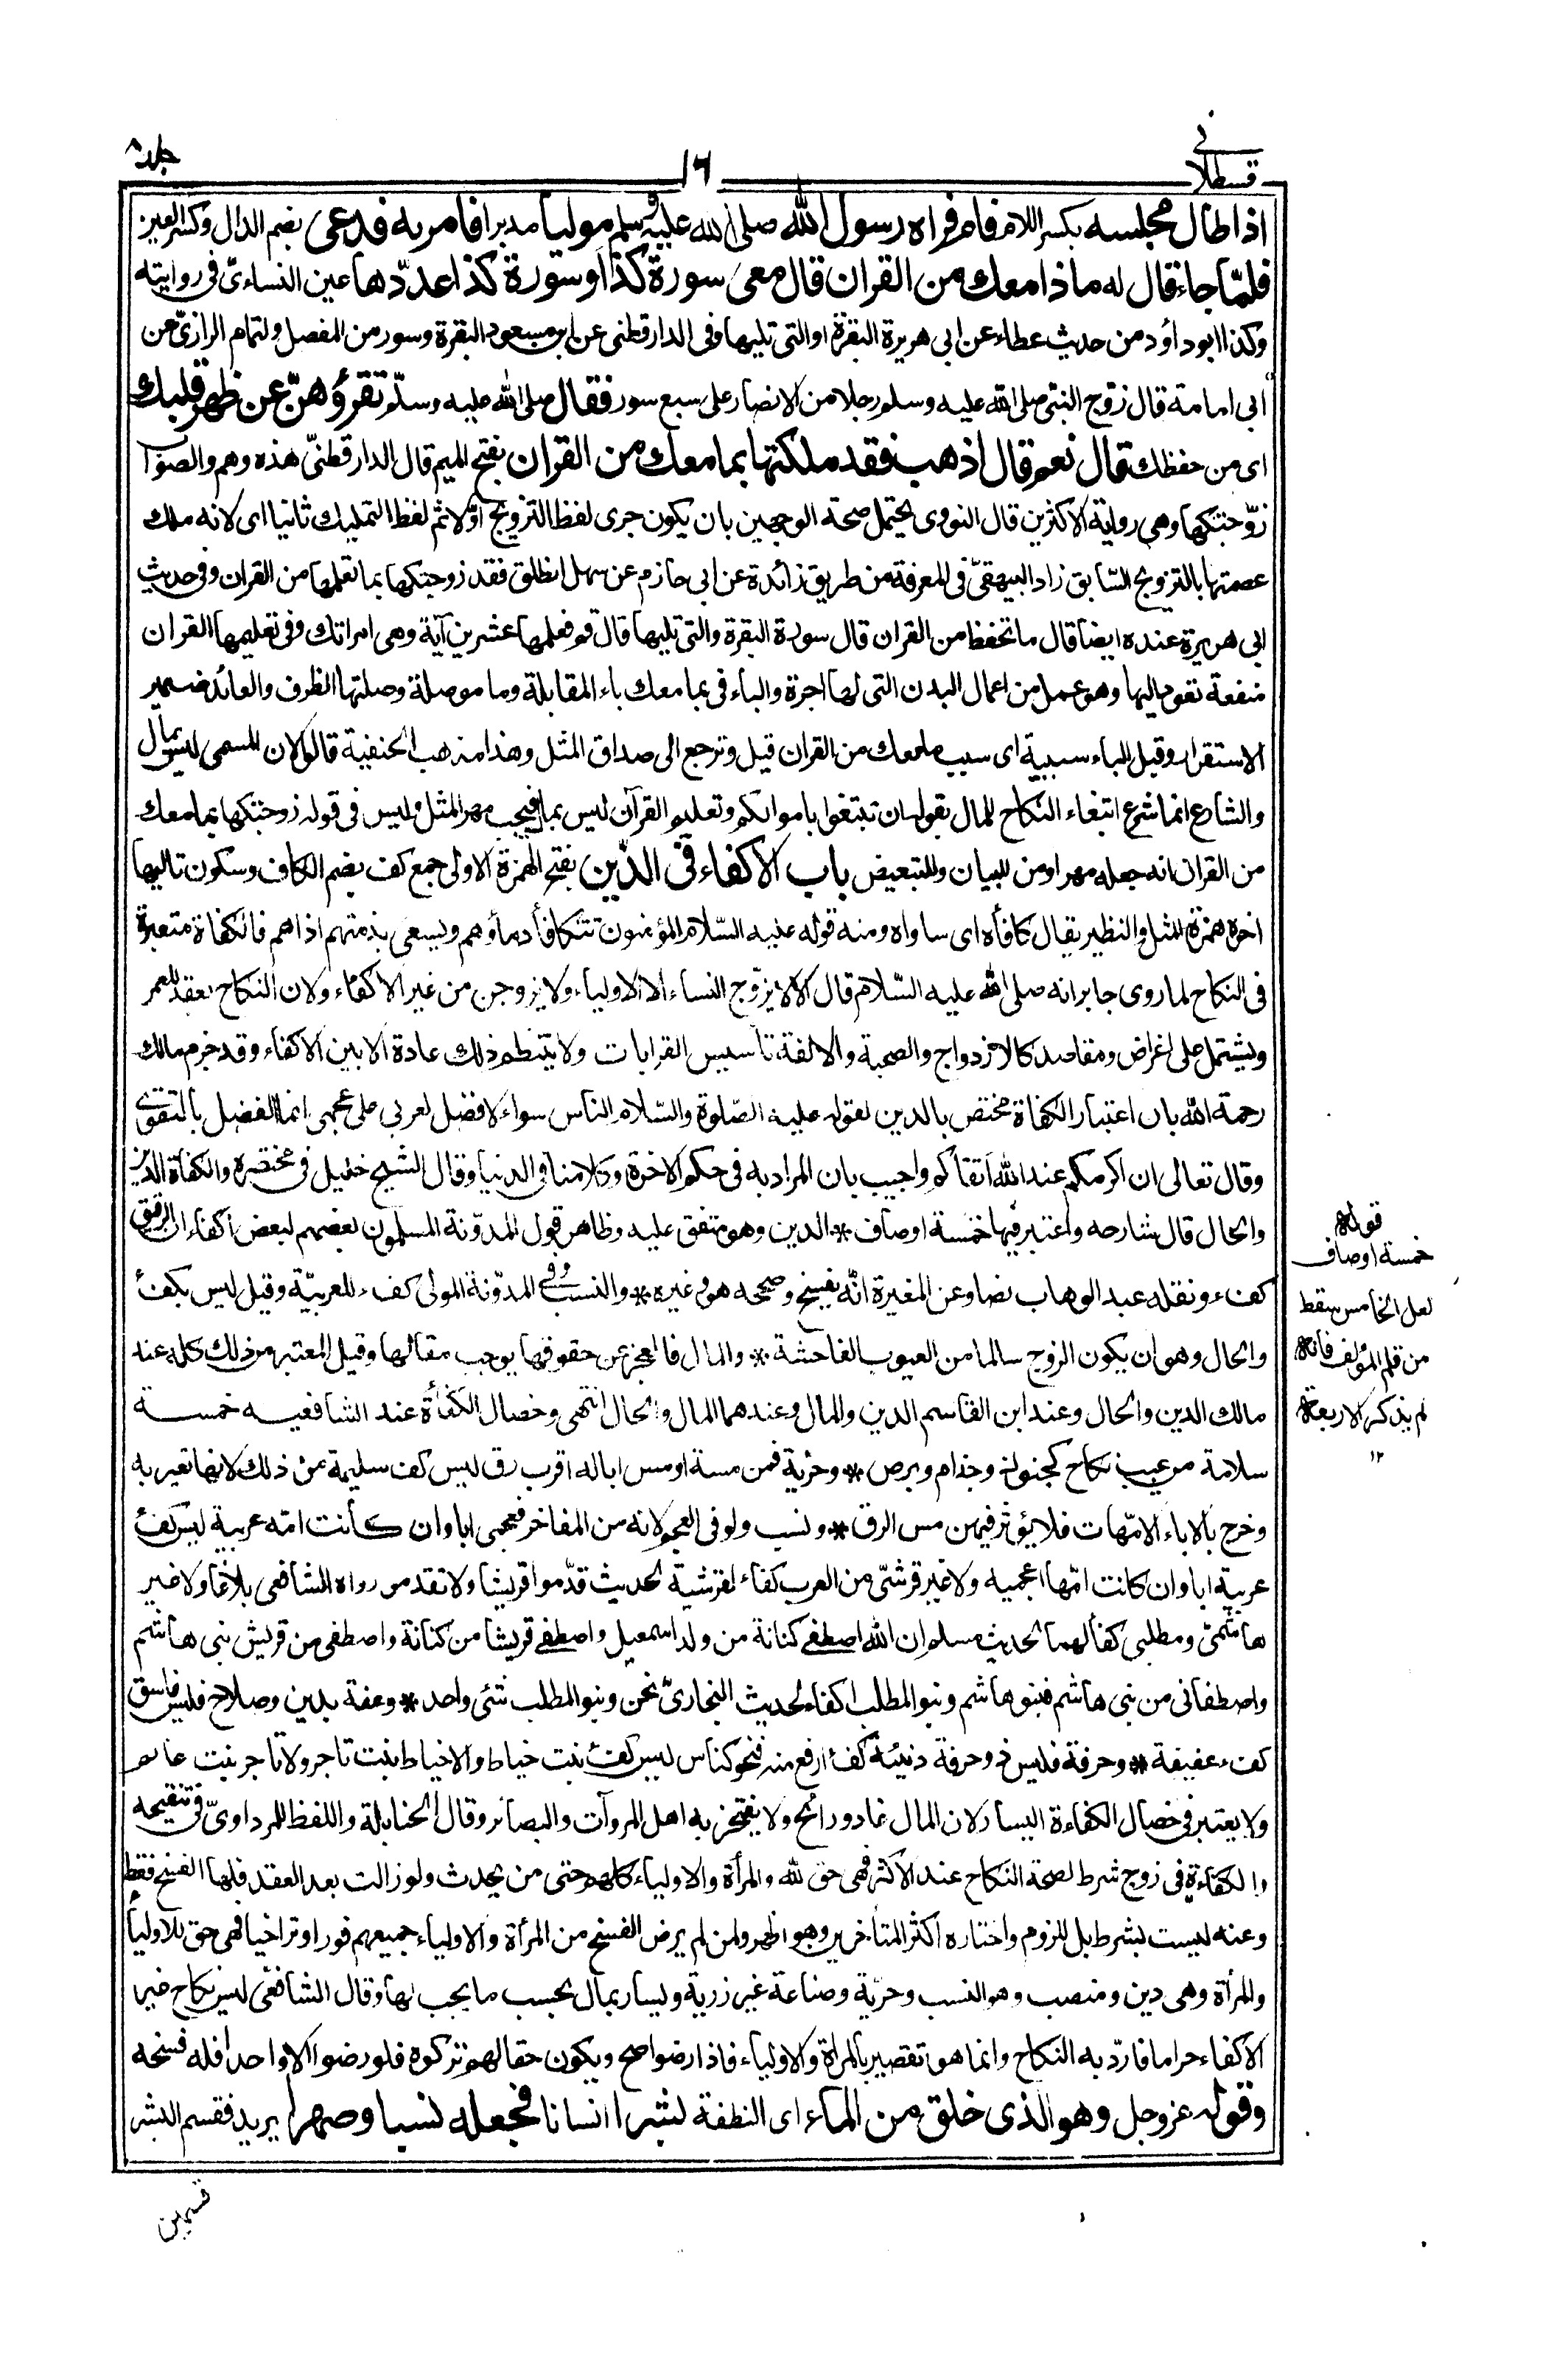 قسطلانی
١٦
جلد ٨
اذا طال مجلسه بكسر اللام قام فراه رسول الله صلى الله عليه وسلم موليا مدبرا فامر به فدعى بضم الدال وكسر العين
فلمّا جاء قال له ماذا معك من القران قال معى سورة كذا وسورة كذا عدّدها عين النساءىّ فى روايته
وكذا ابو داؤد من حديث عطاء عن ابى هريرة البقرة او التى تليها وفى الدارقطنى عن ابن مسعود البقرة وسور من المفصل ولتمام الرازىّ من
ابى امامة قال زوّج النبىّ صلى الله عليه وسلم رجلا من الانصار على سبع سور فقال صلى الله عليه وسلّم تقرؤهنّ عن ظهر قلبك
اى من حفظك قال نعم قال اذهب فقد ملكتها بما معك من القران بفتح الميم قال الدارقطنىّ هذه وهم والصواب
زوّجتكها وهى رواية الاكثرين قال النووى يحتمل صحة الوجهين بان يكون جرى لفظ التزويج اوّلا ثم لفظ التمليك ثانيا اى لانه ملك
عصمتها بالتزويج السّابق زاد البيهقىّ فى المعرفة من طريق زائدة عن ابى حازم عن سهل انطلق فقد زوجتكها بما تعلمها من القران وفى حديث
ابى هريرة عنده ايضا قال ما تحفظ من القران قال سورة البقرة والتى تليها قال قم فعلمها عشرين آية وهى امراتك وفى تعليمها القران
منفعة تعود اليها وهو عمل من اعمال البدن التى لها اجرة والباء فى بما معك باء المقابلة وما موصلة وصلتها الظرف والعائد ضمير
الاستقرار وقيل الباء سببية اى سبب ما معك من القران قيل وترجع الى صداق المثل وهذا مذهب الحنفية قالوا لان المسمى ليس بمال
والشارع انما شرع ابتغاء النكاح للمال بقوله ان تبتغوا باموالكم وتعليم القرآن ليس بمال فيجب مهر المثل وليس فى قوله زوجتكها بما معك
من القران انه جعله مهرا ومن للبيان وللتبعيض باب الاكفاء فى الدّين بفتح الهمزة الاولى جمع كفء بضم الكاف وسكون تاليها
اخره همزة المثل والنظير يقال كافأه اى ساواه ومنه قوله عليه السّلام المؤمنون تتكافأ دماؤهم ويسعى بذمتهم اذاهم فالكفاءة معتبرة
فى النكاح لما روى جابر انه صلى الله عليه السّلام قال الا لا يزوّج النساء الا الاولياء ولا يزوجن من غير الاكفاء ولان النكاح يعقد للعمر
ويشتمل على اغراض ومقاصد كالازدواج والصحبة والالفة تأسيس القرابات ولا ينتظم ذلك عادة الا بين الاكفاء وقد جزم مالك
رحمة الله بان اعتبار الكفاة مختص بالدين لقوله عليه الصّلوة والسّلام الناس سواء لا فضل لعربى على عجمى انما الفضل بالتقوى
وقال تعالى ان اكرمكم عند الله اتقاكم واجيب بان المراد به فى حكم الاخرة وكلامنا فى الدنيا وقال الشيخ خليل فى مختصره والكفأة الدين
والحال قال شارحه واعتبر فيها خمسة اوصاف * الدين وهو متفق عليه وظاهر قول المدوّنة المسلمون بعضهم لبعض أكفاء ان الرقيق
كفء ونقله عبد الوهاب نصا وعن المغيرة انّه يفسخ وصححه هو وغيره * والنسب وفى المدوّنة المولى كفء للعربيّة وقيل ليس بكفء
والحال وهو ان يكون الزوج سالما من العيوب الفاحشة * والمال فالعجز عن حقوقها يوجب مقالها وقيل المعتبر من ذلك كله عند
مالك الدين والحال وعند ابن القاسم الدين والمال وعندهما المال والحال انتهى وخصال الكفأة عند الشافعيه خمسة
سلامة من عيب نكاح كجنون وجذام وبرص * وحرّية فمن مسه او مس ابا له اقرب رق ليس كفء سليمة من ذلك لانها تعير به
وخرج بالاباء الامّهات فلا يؤثر فيهن مس الرق * ونسب ولو فى العجم لانه من المفاخر فعجمى ابا وان كانت امّه عربية ليس كفء
عربية ابا وان كانت امّها اعجميه ولا غير قرشىّ من العرب كفاء لقرشية لحديث قدّموا قريشا ولا تقدموا رواه الشافعى بلاغا ولا غير
هاشمىّ ومطلبى كفأ لهما لحديث مسلم ان الله اصطفى كنانة من ولد اسمعيل واصطفى قريشا من كنانة واصطفى من قريش بنى هاشم
واصطفانى من بنى هاشم فبنو هاشم وبنو المطلب اكفاء لحديث البخارىّ نحن وبنو المطلب شئ واحد * وعفة بدين وصلاح فليس فاسق
كفء عفيفة * وحرفة فليس ذو حرفة دنيئة كفء ارفع منه فنحو كناس ليس كفء بنت خياط ولا خياط بنت تاجر ولا تاجر بنت عالم
ولا يعتبر فى خصال الكفاءة اليسار لان المال غاد ورائح ولا يفتخر به اهل المروآت والبصائر وقال الحنابلة واللفظ للمرداوىّ فى تنقيحه
والكفاءة فى زوج شرط لصحة النكاح عند الاكثر فهى حق لله والمرأة والاولياء كلهم حتى من يحدث ولو زالت بعد العقد فلها الفسخ فقط
وعنه ليست بشرط بل للزوم واختاره اكثر المتأخرين وهو اظهر ولمن لم يرض الفسخ من المرأة والاولياء جميعهم فورا وتراخيا فهى حق للاولياء
والمرأة وهى دين ومنصب وهو النسب وحرّية وصناعة غير زرية ويسار بمال بحسب ما يجب لها وقال الشافعىّ ليس نكاح غير
الاكفاء حراما فاردّ به النكاح وانما هو تقصير بالمرأة والاولياء فاذا رضوا صح ويكون حقا لهم تركوه فلو رضوا الا واحدا فله فسخه
وقوله عزوجل وهو الذى خلق من الماء اى النطفة بشرا انسانا فجعله نسبا وصهرا يريد فقسم البشر
قسمين
قوله
خمسة اوصاف
لعل الخامس سقط
من قلم المؤلف فانه
لم يذكر الا اربعة
١٢